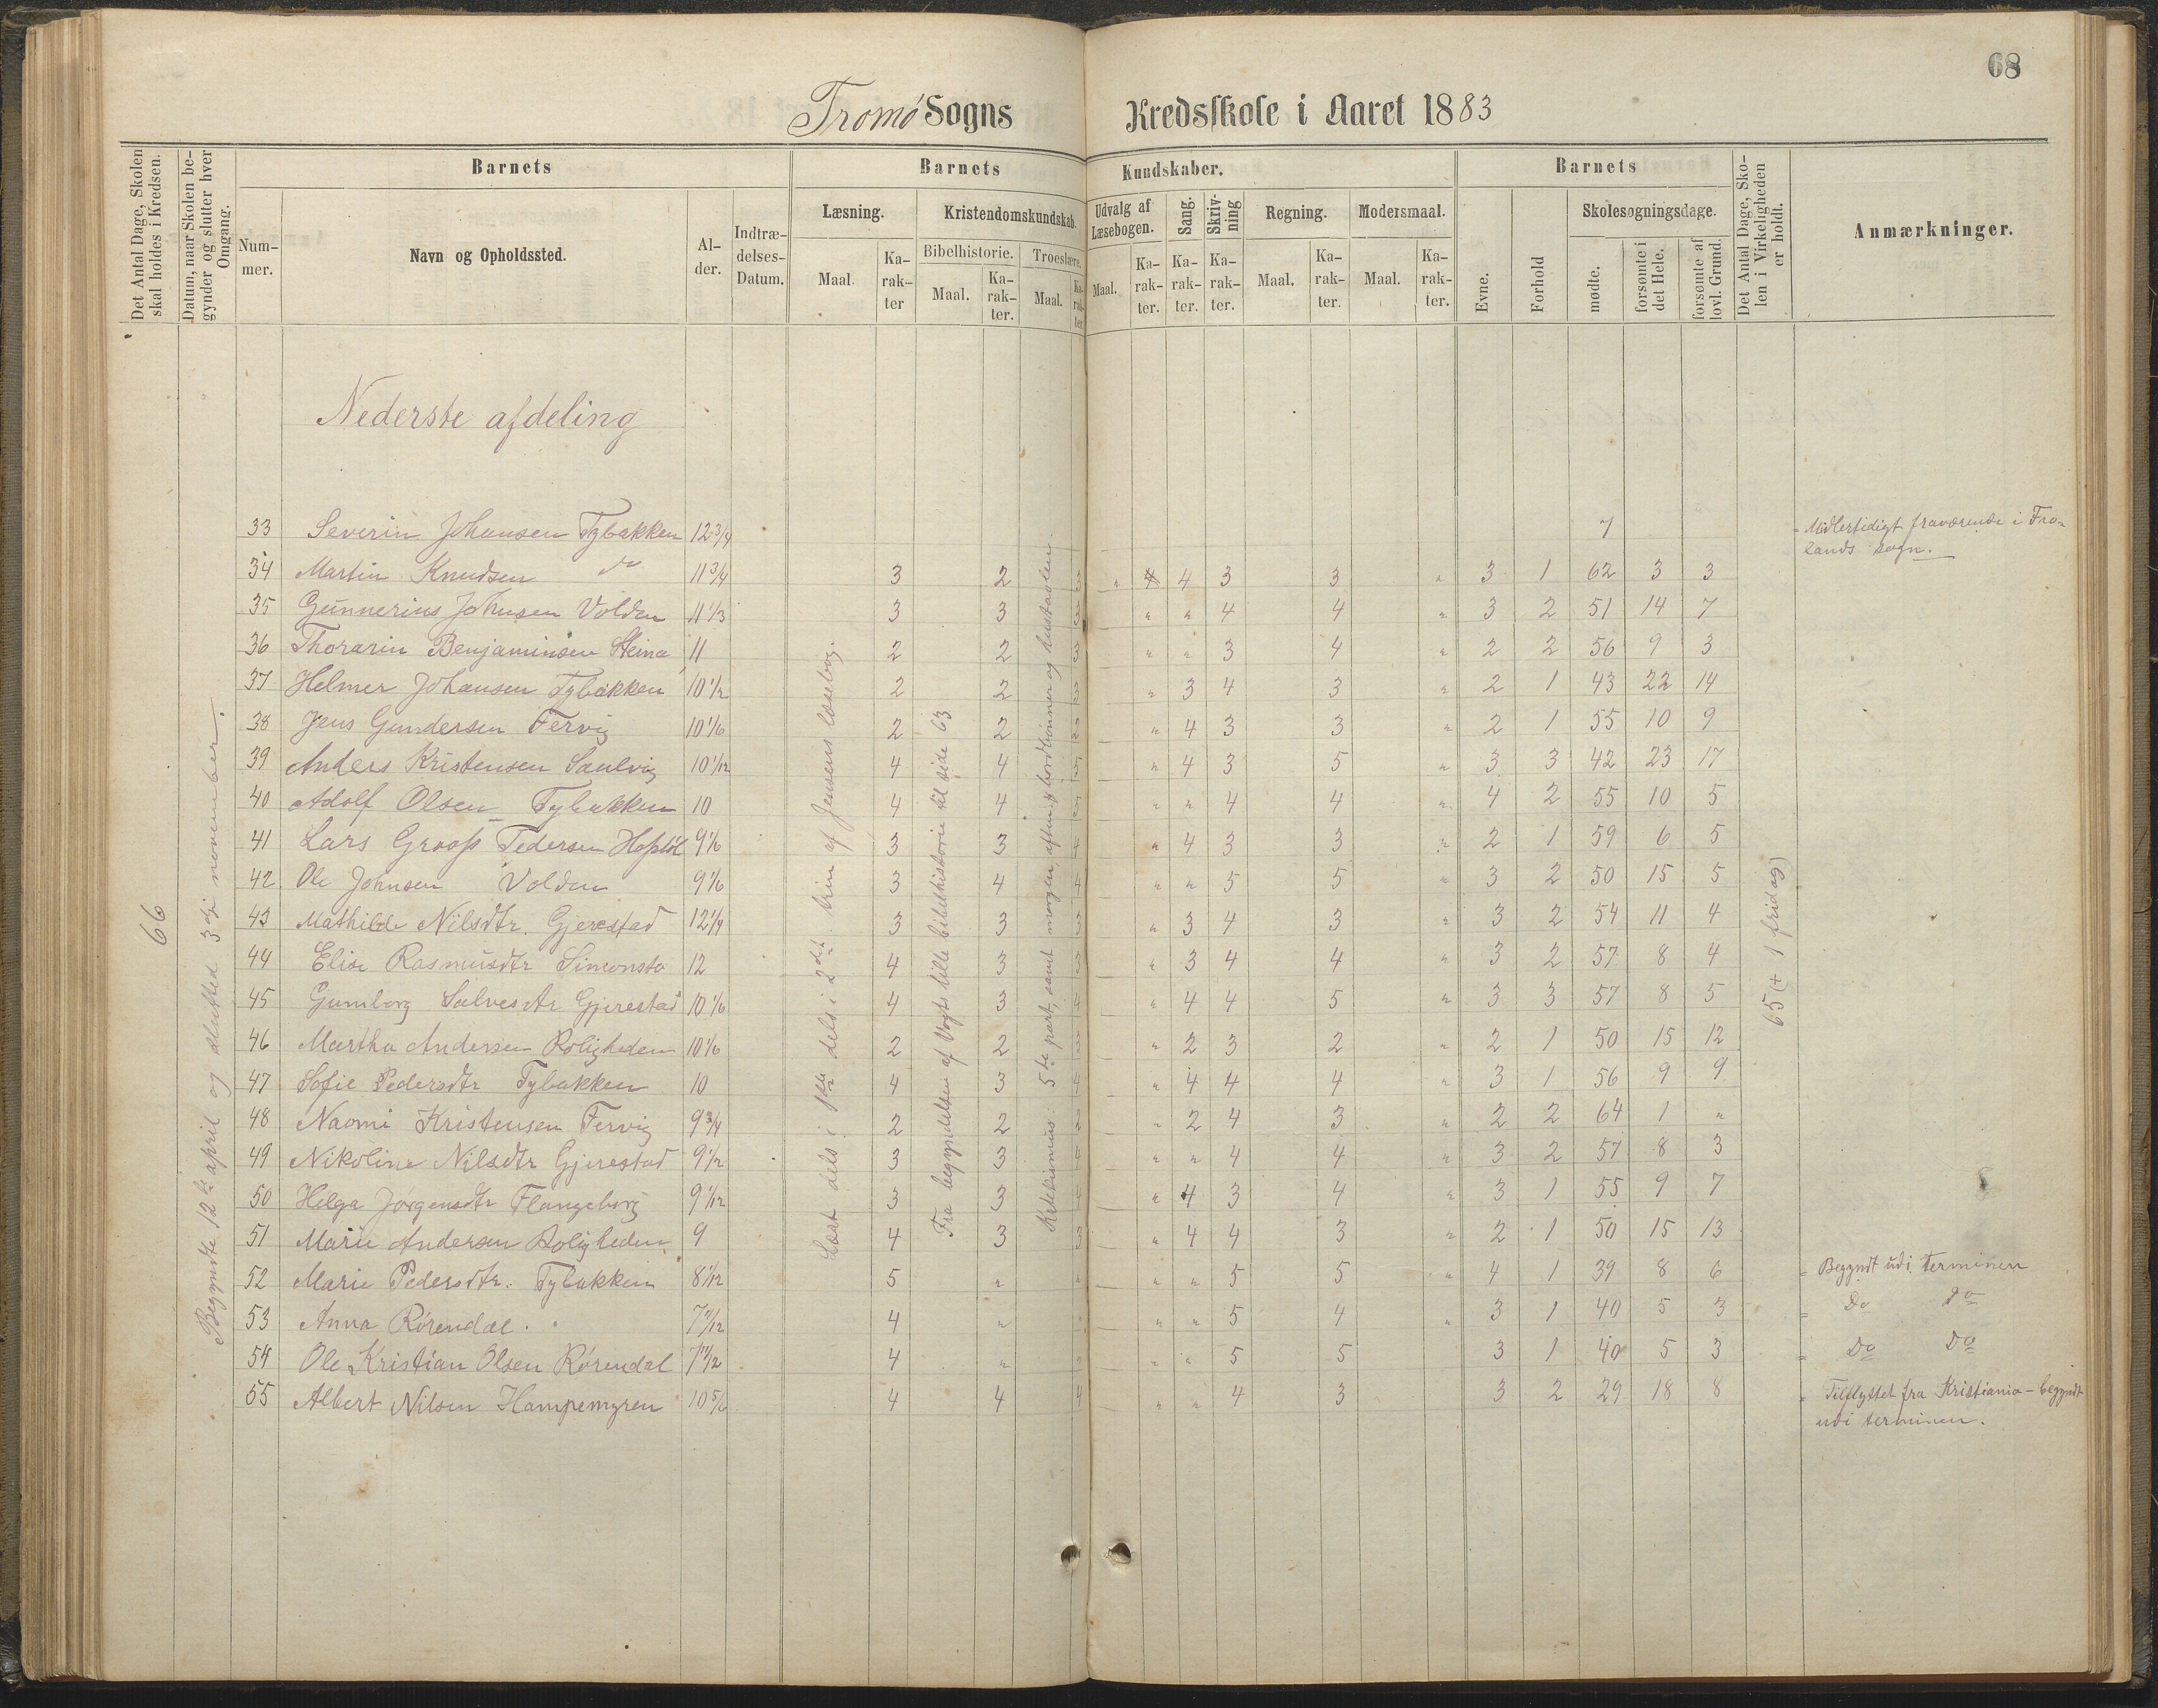 68
Tromø Sogns Kredsskole i Aaret 1883
Det Antal Dage, Skolen skal holdes i Kredsen.
Datum, naar Skolen begynder og slutter hver Omgang.
Barnets
Nummer.
Navn og Opholdssted.
Alder.
Indtrædelses-Datum.
Barnets Kundskaber.
Læsning.
Maal.
Karakter
Kristendomskundskab.
Bibelhistorie.
Maal.
Karakter.
Troeslære.
Maal.
Karakter.
Udvalg af Læsebogen.
Maal.
Karakter.
Sang.
Karakter.
Skrivning
Karakter.
Regning.
Maal.
Karakter.
Modersmaal.
Maal.
Karakter.
Barnets
Evne.
Forhold
Skolesøgningsdage.
mødte.
forsømte i det Hele.
forsømte af lovl. Grund.
Det Antal Dage, Skolen i Virkeligheden er holdt.
Anmærkninger.
66
Begyndte 12te april og slutted 3die november.
Læst dels i 1ste dels i 2det trin af Jensens læsebog.
Fra begyndelsen af Vogts lille bibelhistorie til side 63
Katekismus: 5te part, samt morgen, aften & bordbønner og hustavlen.
65 (+ 1 fridag)
Nederste afdeling
33 Severin Johansen Tybakken 12 3/4 7 Midlertidigt fraværende i Fro-
lands sogn.
34 Martin Knudsen do 11 3/4 3 2 3 " 4 4 3 3 " 3 1 62 3 3
35 Gunnerius Johnsen Volden 11 1/3 3 3 3 " " 4 4 " 3 2 51 14 7
36 Thorarin Benjaminsen Steina 11 2 2 3 " " 3 4 " 2 2 56 9 3
37 Helmer Johansen Tybakken 10 1/2 2 2 3 " 3 4 3 " 2 1 43 22 14
38 Jens Gundersen Færvig 10 1/6 2 2 2 " 4 3 3 " 2 1 55 10 9
39 Anders Kristensen Sandvig 10 1/12 4 4 5 " 4 3 5 " 3 3 42 23 17
40 Adolf Olsen Tybakken 10 4 4 5 " " 4 4 " 4 2 55 10 5
41 Lars Groos Pedersen 9 1/6 3 3 4 " 4 3 3 " 2 1 59 6 5
42 Ole Johnsen Volden 9 1/6 3 4 4 " " 5 5 " 3 2 50 15 5
43 Mathilde Nilsdtr. Gjerestad 12 1/4 3 3 3 " 3 4 3 " 3 2 54 11 4
44 Elise Rasmusdtr Simonsto 12 4 3 3 " 3 4 4 " 3 2 57 8 4
45 Gunborg Salvesdtr Gjerestad 10 1/6 4 3 4 " 4 4 5 " 3 3 57 8 5
46 Martha Andersen Roligheden 10 1/6 2 2 3 " 2 3 2 " 2 1 50 15 12
47 Sofie Pedersdtr Tybakken 10 4 3 4 " 4 4 4 " 3 1 56 9 9
48 Naomi Kristensen Fervig 9 3/4 2 2 2 " 2 4 3 " 2 2 64 1 "
49 Nikoline Nilsdtr Gjerestad 9 1/2 3 3 4 " " 4 4 " 3 2 57 8 3
50 Helga Jørgensdtr Flangeborg 9 1/12 3 3 4 " 4 3 4 " 3 1 55 9 7
51 Marie Andersen Roligheden 9 4 3 3 " 4 4 3 " 2 1 50 15 13
52 Marie Pedersdtr. Tybakken 8 1/12 5 " " " " 5 5 " 4 1 39 8 6 Begyndt udi terminen
53 Anna Rørendal 7 11/12 4 " " " " 5 4 " 3 1 40 5 3 Do Do
54 Ole Kristian Olsen Rørendal 7 1/2 4 " " " " 5 5 3 1 40 5 3 Do Do
55 Albert Nilsen Hampemyren 10 5/6 4 4 4 " " 4 3 3 2 29 18 8 Tilflyttet fra Kristiania - begyndt
udi terminen.